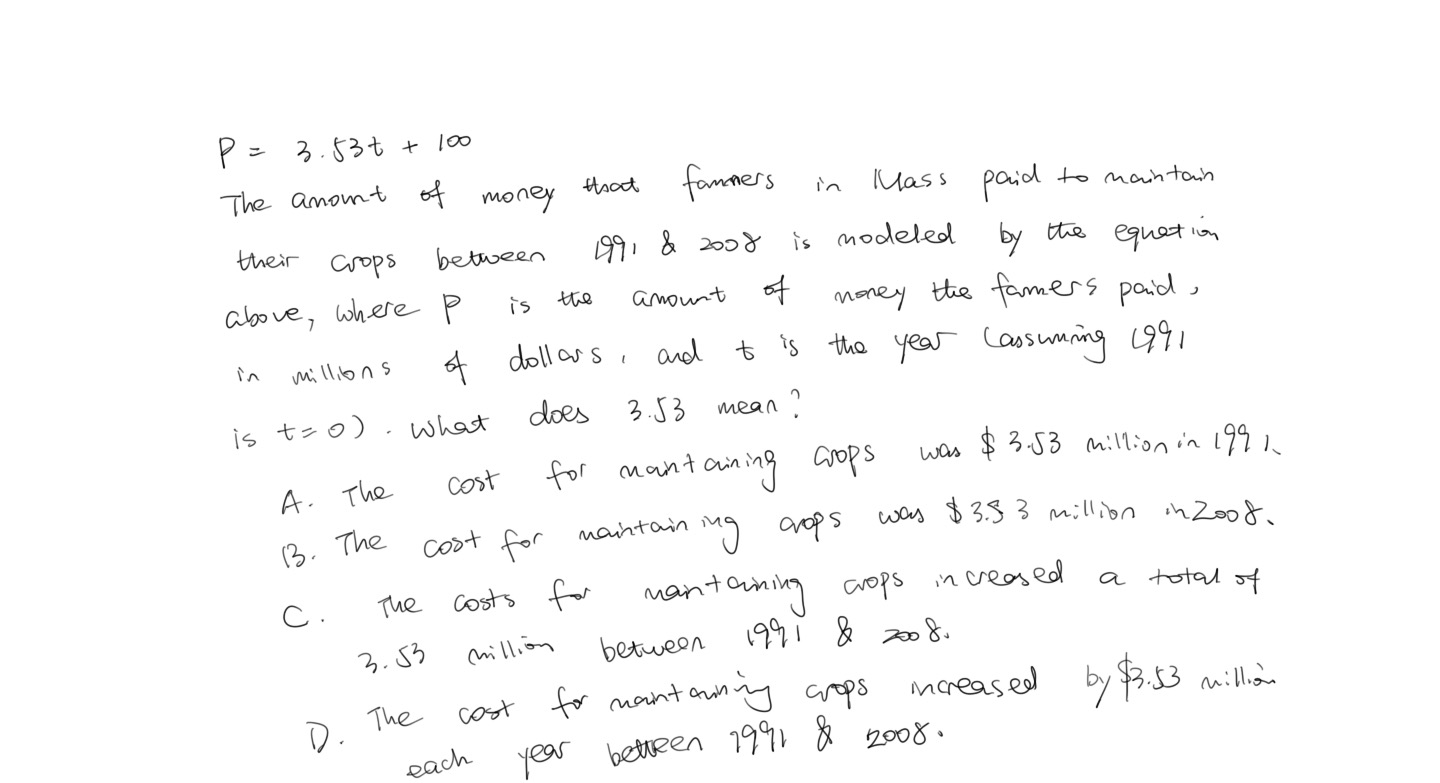 P = 3.53t + 100
The amount of money that farmers in Mass paid to maintain
their crops between 1991 & 2008 is modeled by the equation
above, where P is the amount of money the farmers paid,
in millions of dollars, and t is the year (assuming 1991
is t=0). What does 3.53 mean?
A. The cost for maintaining crops was $3.53 million in 1991.
B. The cost for maintaining crops was $3.53 million in 2008.
C. The costs for maintaining crops increased a total of
3.53 million between 1991 & 2008.
D. The cost for maintaining crops increased by $3.53 million
each year between 1991 & 2008.